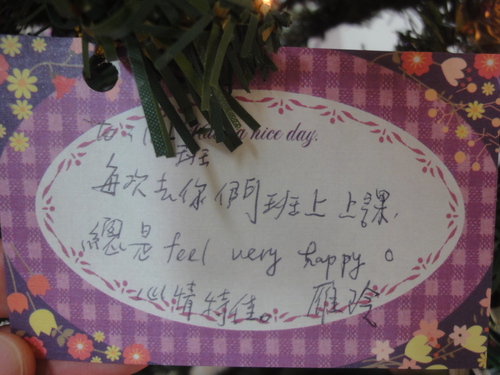 to
a nice day.
班
每次去你們班上上課,
總是 feel very happy。
心情特佳。 雁玲